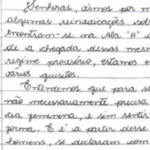 Senhoras, vimos por m
algumas reivindicações sob
encontram-se na Ala "A" d
de a chegada dessas mes
regime provisório, estamos
vários quesitos.
Entimemos que para se
não necessariamente precisa
ia feminina, e sim sentir
forma. E é a partir desse
homens, se declaram com